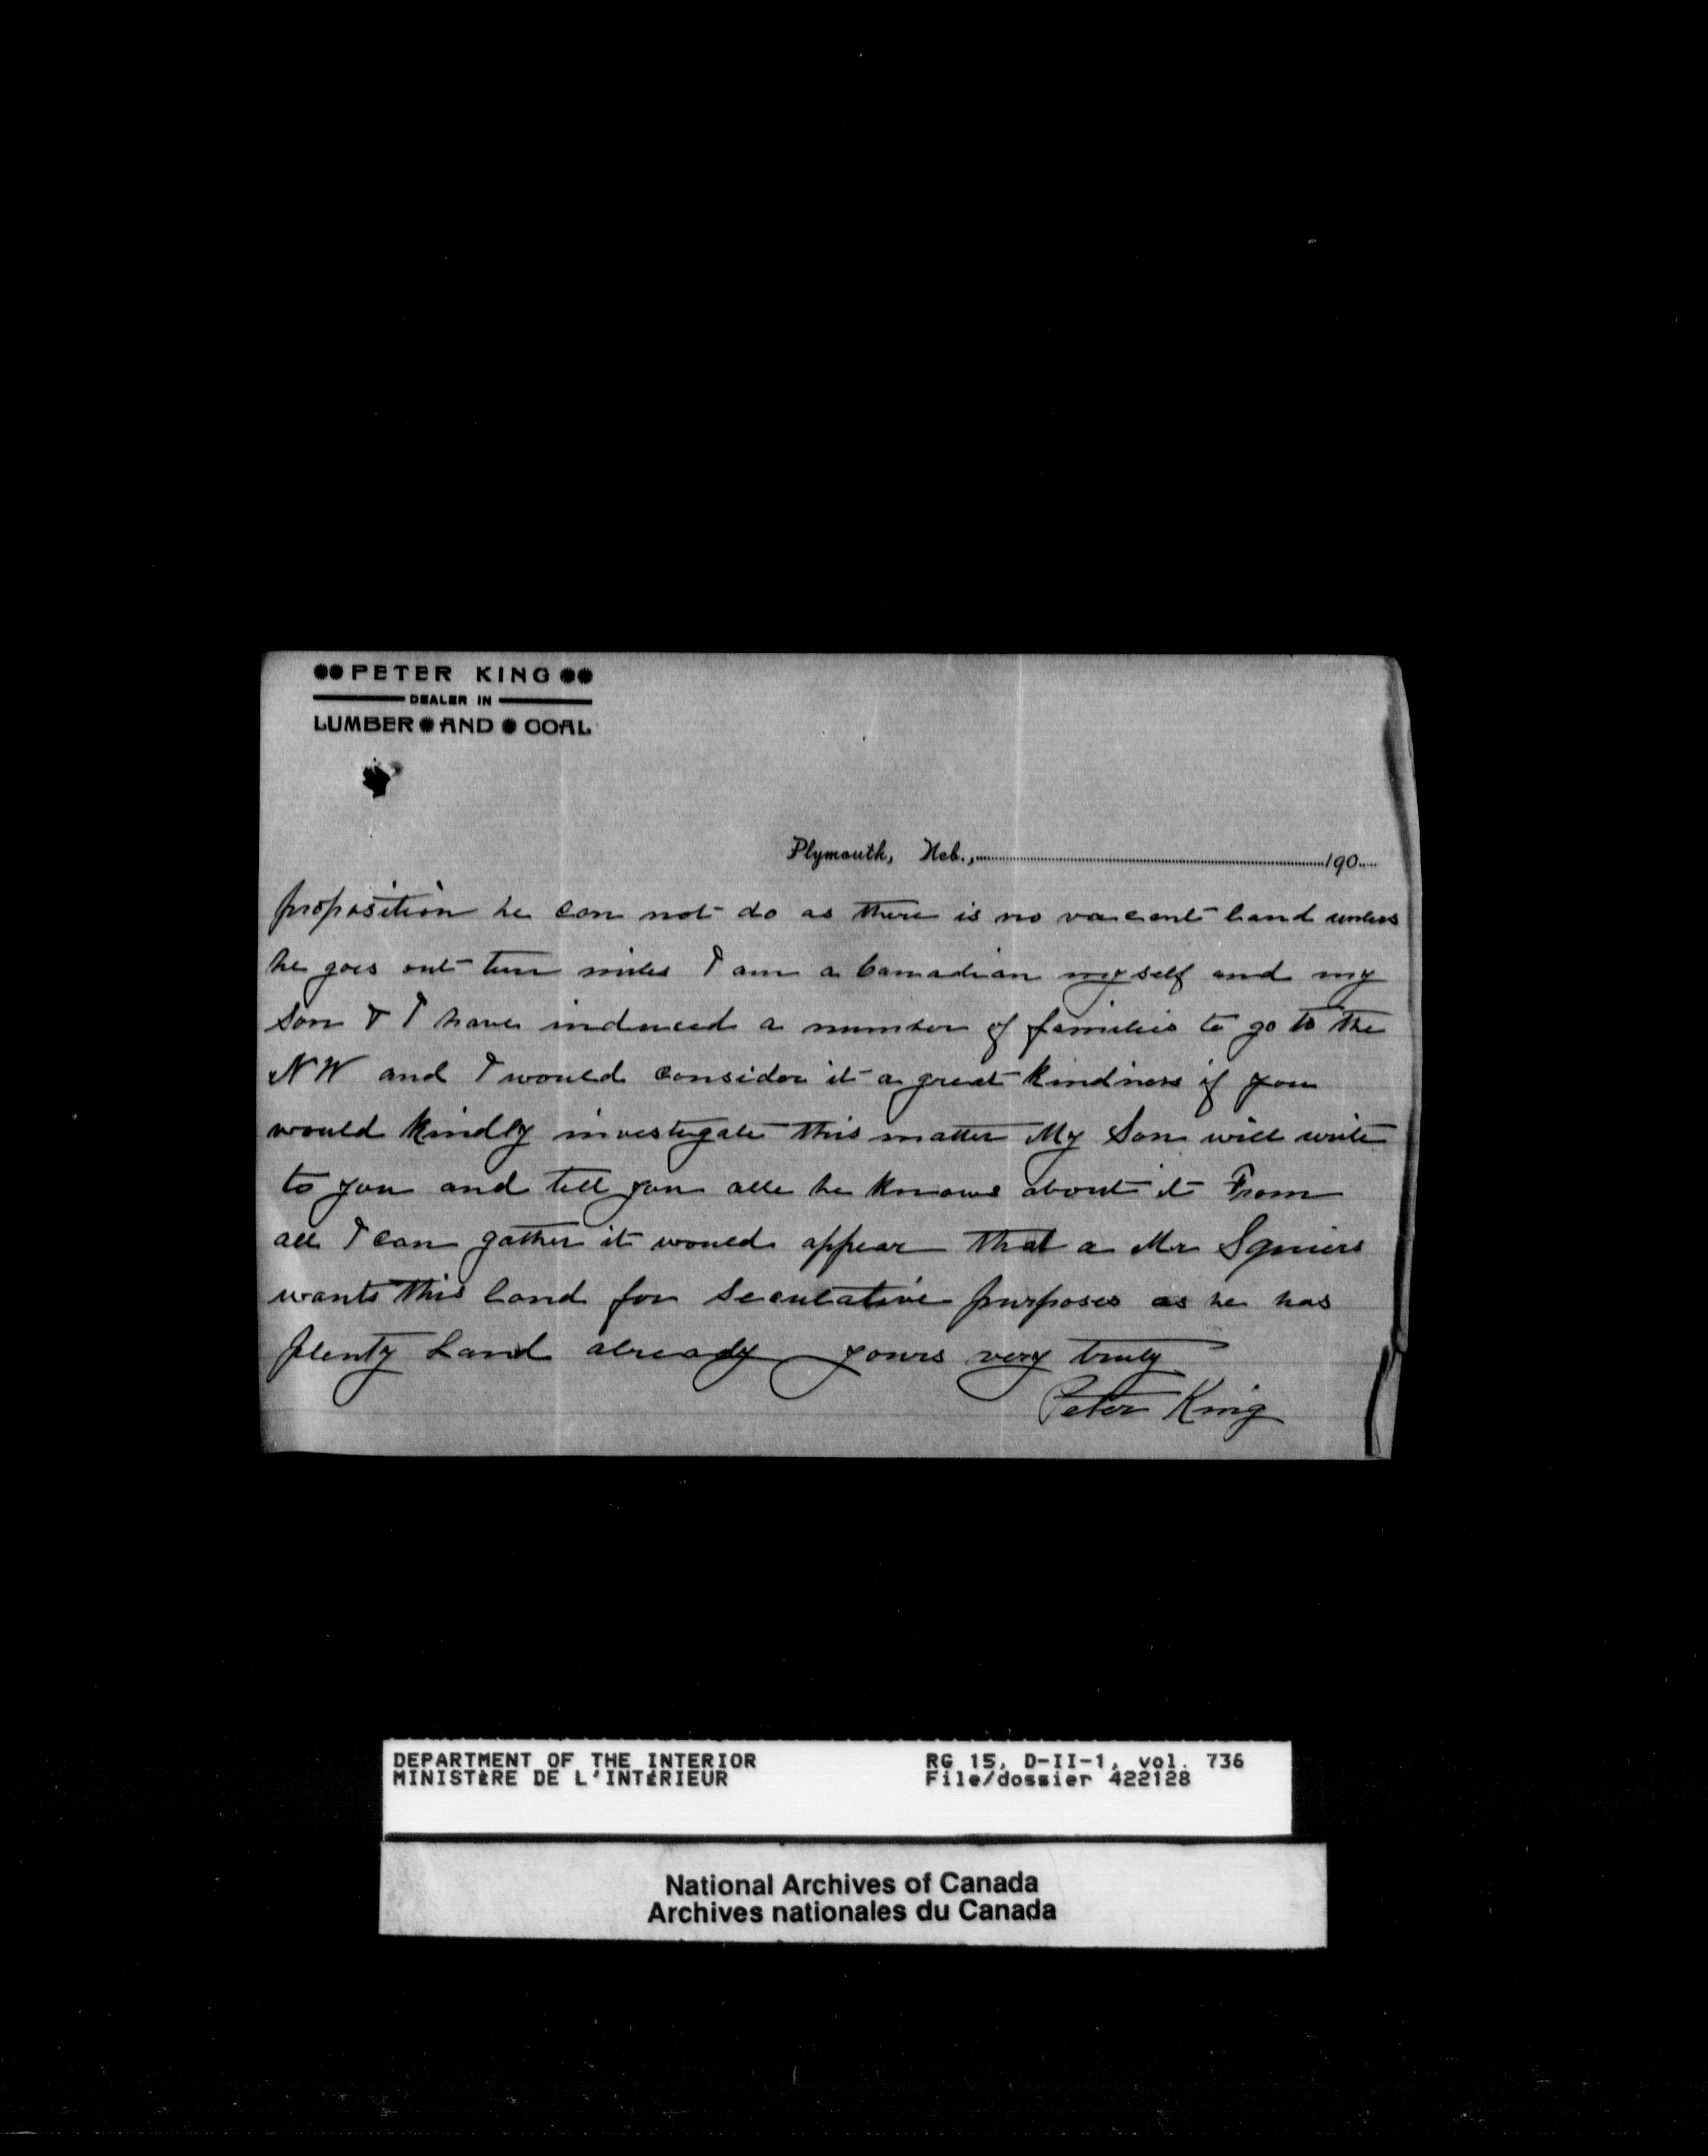 PETER KING
DEALER IN
LUMBER AND COAL
Plymouth, Neb., 190
proposition he can not do as there is no vacant land unless
he goes out ten miles I am a Canadian myself and my
Son & I have induced a number of families to go to the
NW and I would consider it a great kindness if you
would kindly investigate this matter My Son will write
to you and tell you all he knows about it From
all I can gather it would appear that a Mr Squiers
wants this land for Seculative purposes as he has
plenty Land already yours very truly
Peter King
DEPARTMENT OF THE INTERIOR RG 15, D-II-1, vol. 736
MINISTÈRE DE L'INTÉRIEUR File/dossier 422128
National Archives of Canada
Archives nationales du Canada